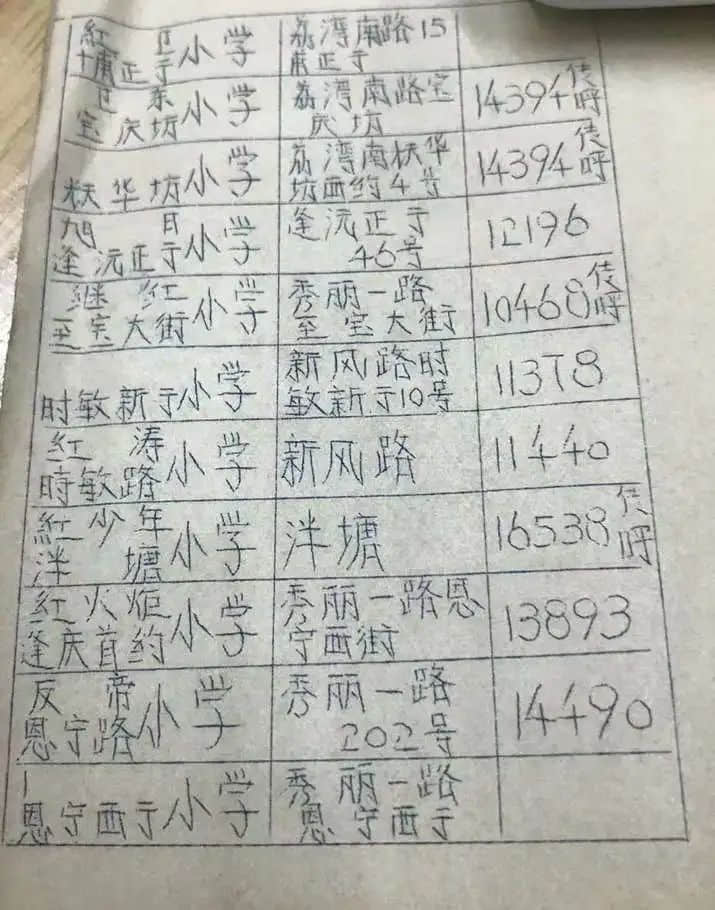 紅卫
十甫正于小学
荔湾南路15
甫正于
卫东
宝庆坊小学
荔湾南路宝
庆坊
14394传呼
秩华坊小学
荔湾南秩华
坊西约4号
14394传呼
旭日
逢沅正于小学
逢沅正于
46号
12196
继红
至宝大街小学
秀丽一路
至宝大街
10468传呼
时敏新于小学
新风路时
敏新于10号
11378
红涛
時敏路小学
新风路
11440
紅少年
泮塘小学
泮塘
16538传呼
红火炬
逢庆首约小学
秀丽一路恩
宁西街
13893
反帝
恩宁路小学
秀丽一路
202号
14490
恩宁西于小学
秀丽一路
恩宁西于